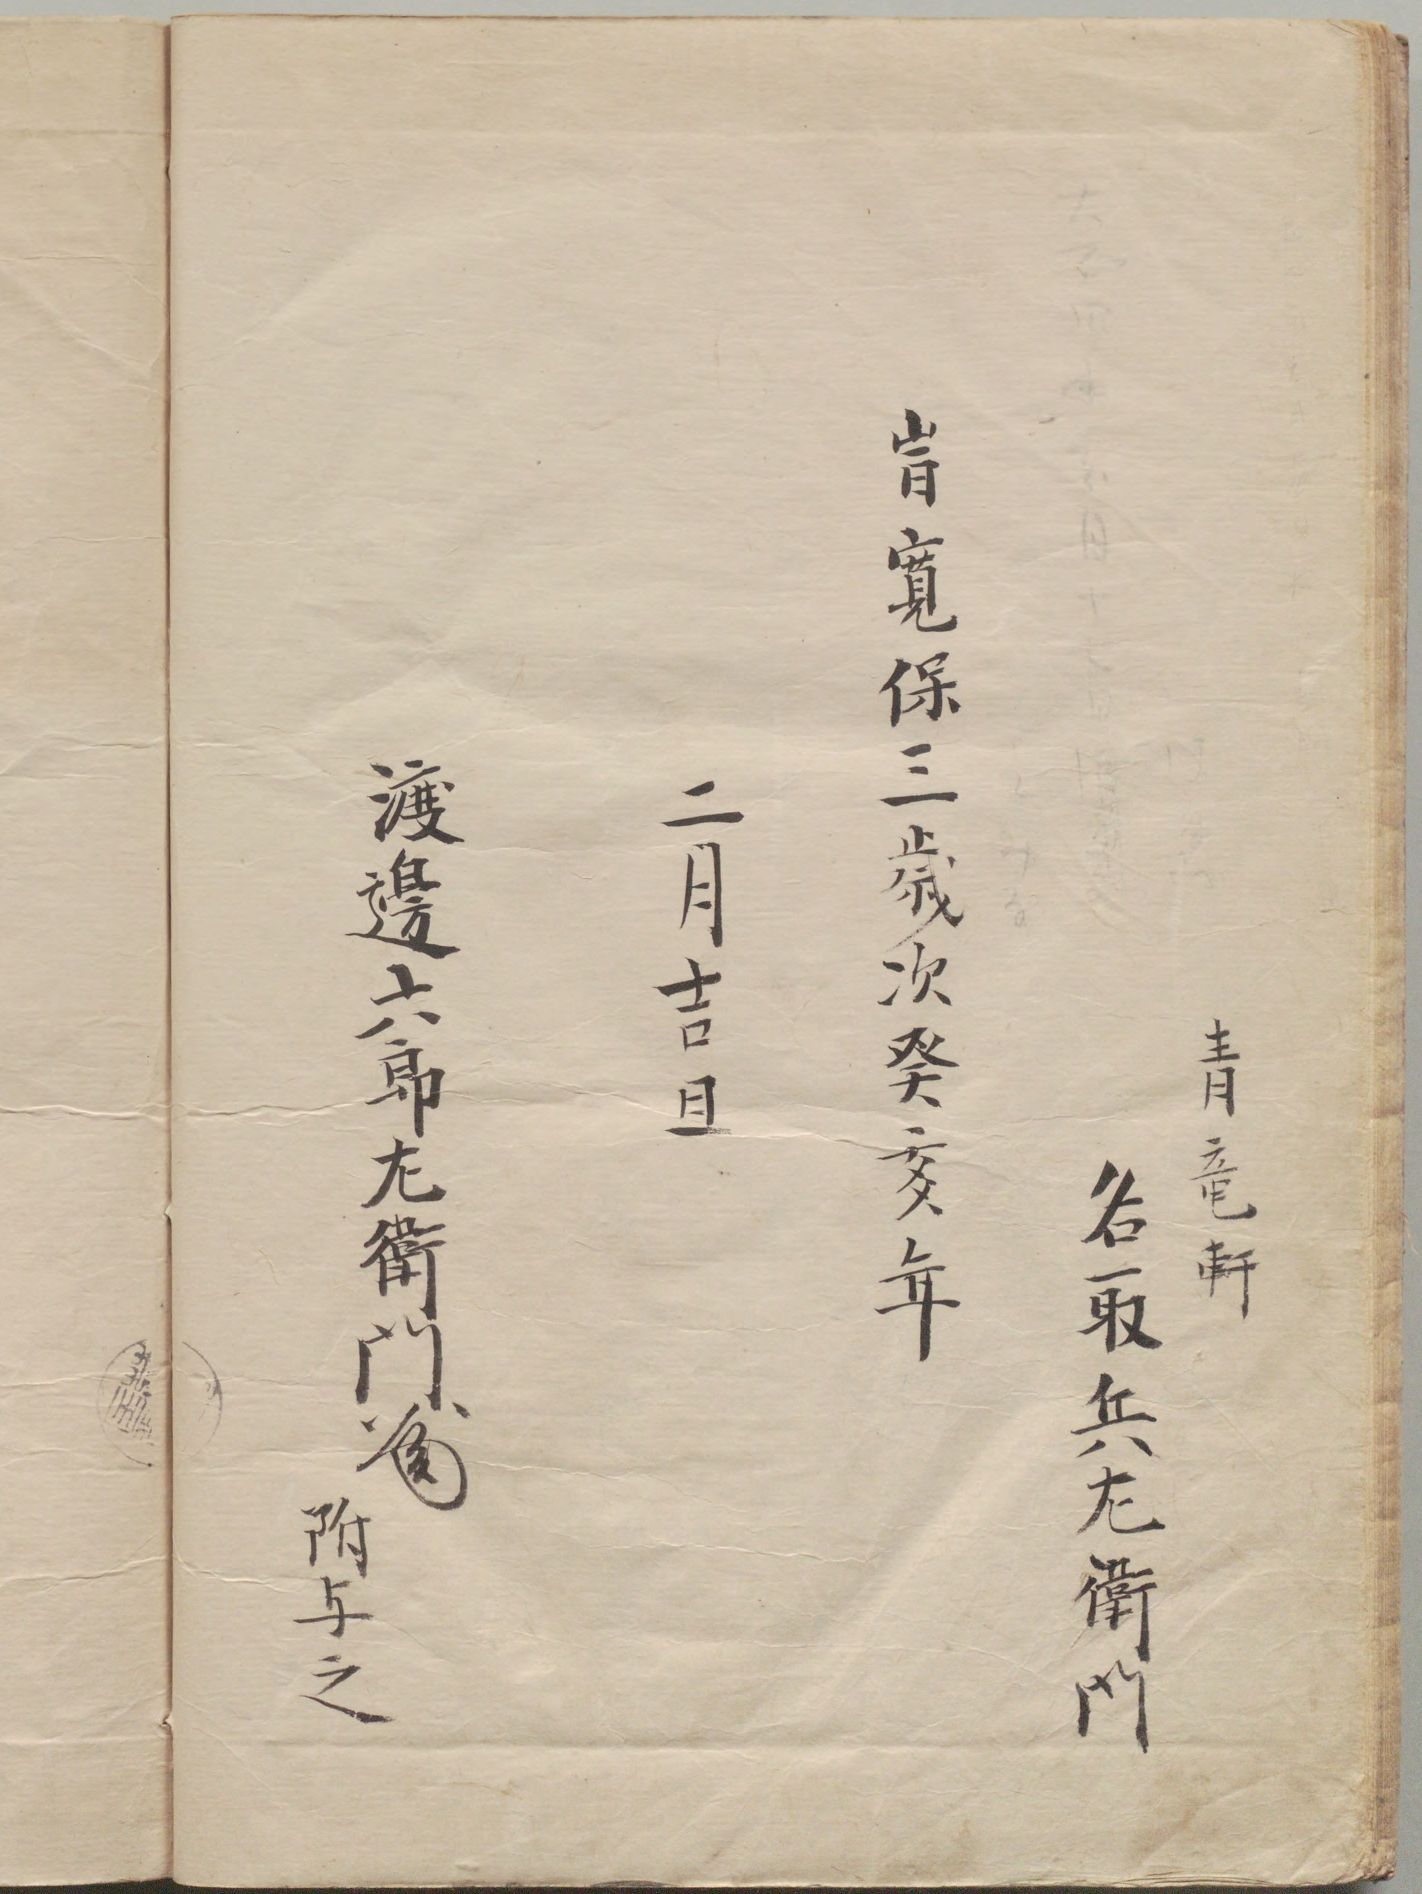 青竜軒
名取兵左衛門
旹寛保三歳次癸亥年
二月吉旦
渡邊六郎左衛門
附与之